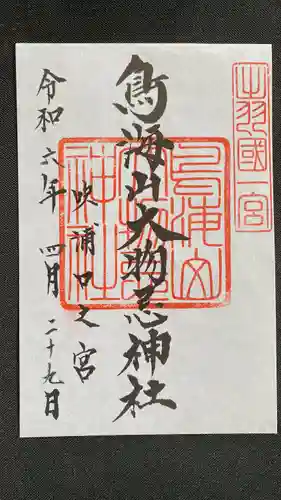 出羽國一宮
鳥海山大物忌神社
吹浦口之宮
令和六年四月二十九日